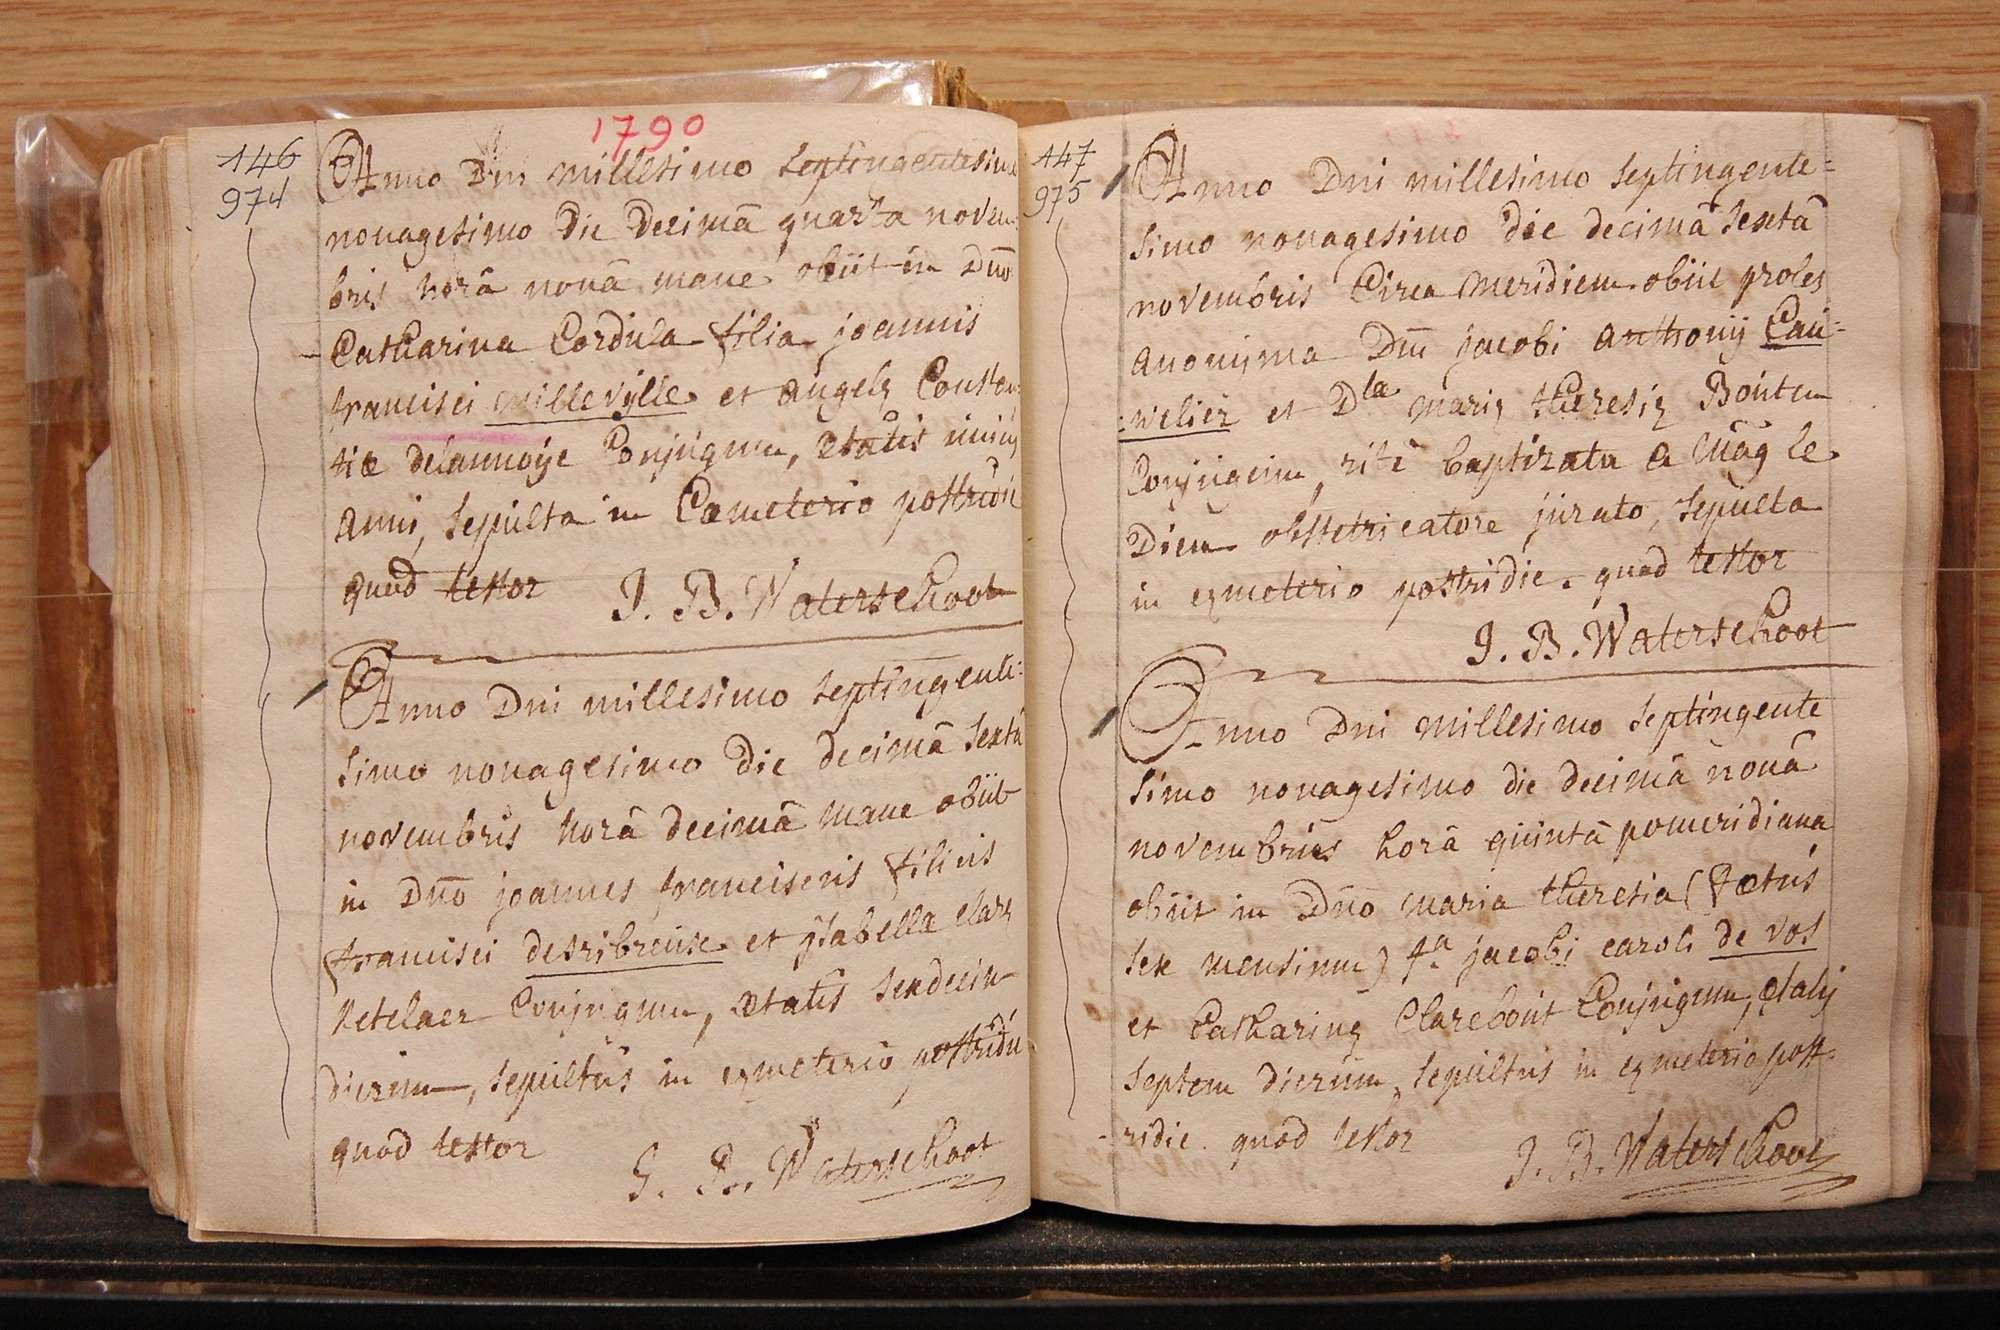 1790
146
974
Anno Dni millesimo septingentesimo
nonagesimo die decimâ quarta novem-
bris horâ nonâ mane obiit in Dno
Catharina Cordula filia joannis
francisci Milleville et angelę Constan-
tiæ delannoije Conjugum, ætatis unius
anni, sepulta in Cæmeterio postridie
quod testor J. B. Waterschoot
Anno Dni millesimo septingente=
simo nonagesimo die decimâ sextâ
novembris horâ decimâ mane obiit
in Dno joannes franciscus filius
francisci desribreuse et ysabellæ claræ
Ketelaer Conjugum, ætatis sexdecim
dierum, sepultus in cęmeterio postridie
quod testor
J. B. Waterschoot
147
975
Anno Dni millesimo septingente=
simo nonagesimo die decimâ sextâ
novembris Circa meridiem obiit proles
anonijma Dni jacobi anthonij Cau=
=welier et Dlæ marię theresię Boutem
Conjugum, ritè baptizata a Mag le
Dieu obstetricatore jurato, sepulta
in cęmeterio postridie. quod testor
J. B. Waterschoot
Anno Dni millesimo septingente
simo nonagesimo die decimâ nonâ
novembris horâ quintâ pomeridiana
obiit in Dno maria theresia (fœtus
sex mensium) fa jacobi caroli de vos
et Catharinę Clarebout Conjugum, ętatis
septem dierum, sepultus in cęmeterio post-
-ridie quod testor
J. B. Waterschoot